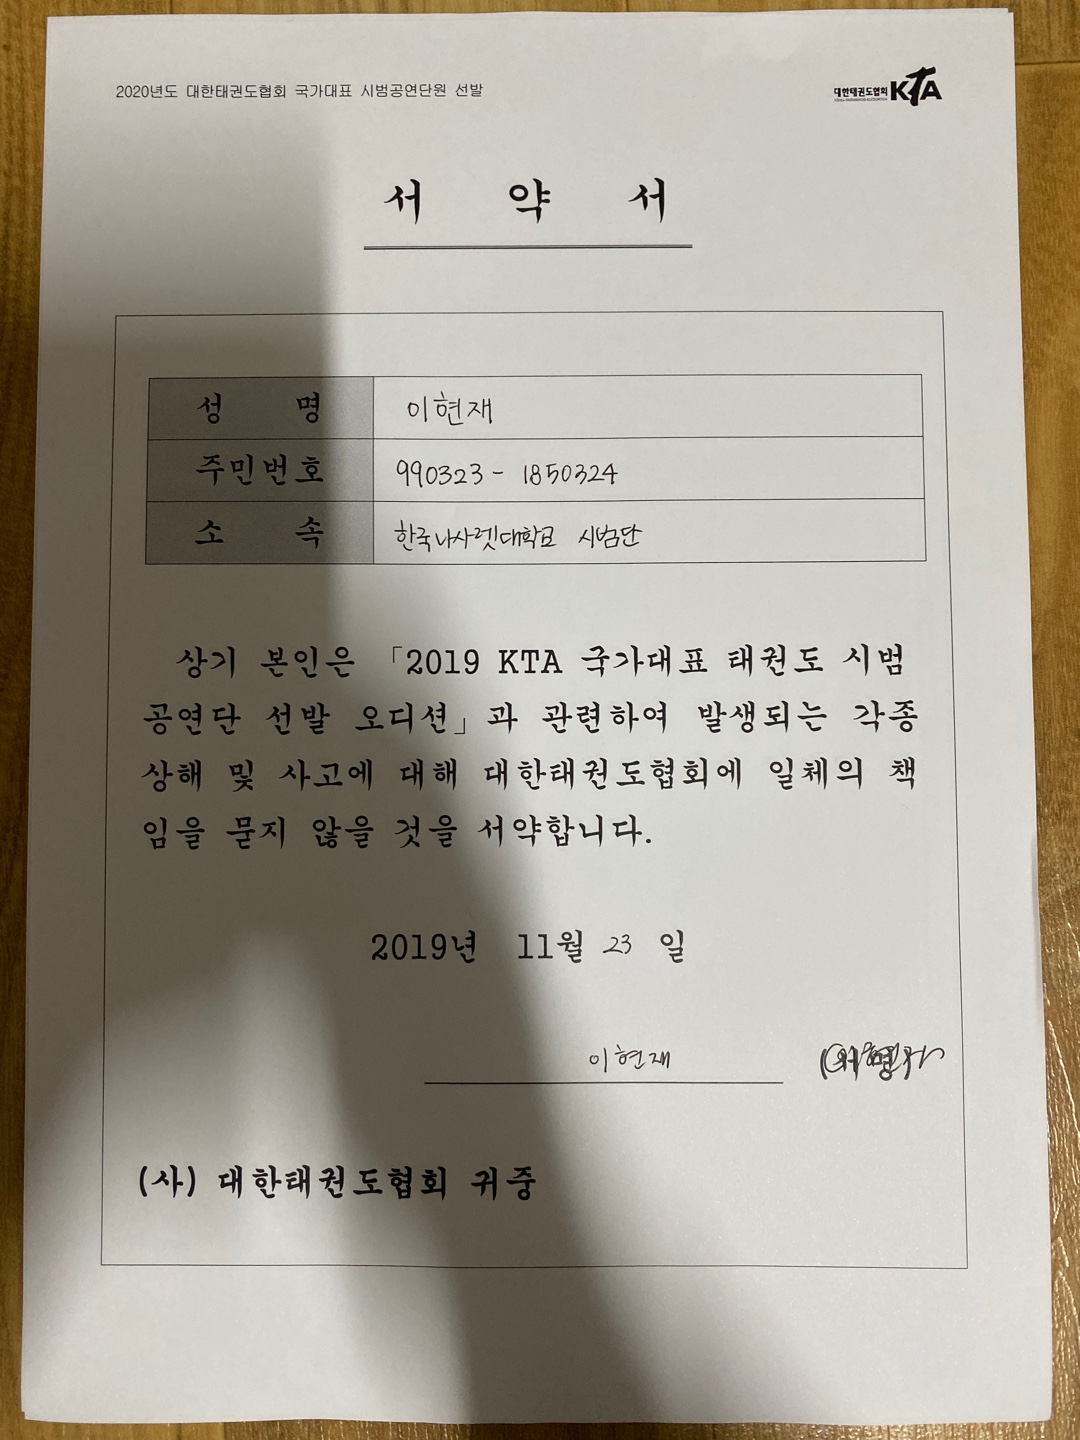 2020년도 대한태권도협회 국가대표 시범공연단원 선발
대한태권도협회 KTA
서 약 서
성 명 이현재
주민번호 990323 - 1850324
소 속 한국나사렛대학교 시범단
상기 본인은 「2019 KTA 국가대표 태권도 시범
공연단 선발 오디션」과 관련하여 발생되는 각종
상해 및 사고에 대해 대한태권도협회에 일체의 책
임을 묻지 않을 것을 서약합니다.
2019년 11월 23 일
이현재 (서명)
(사) 대한태권도협회 귀중